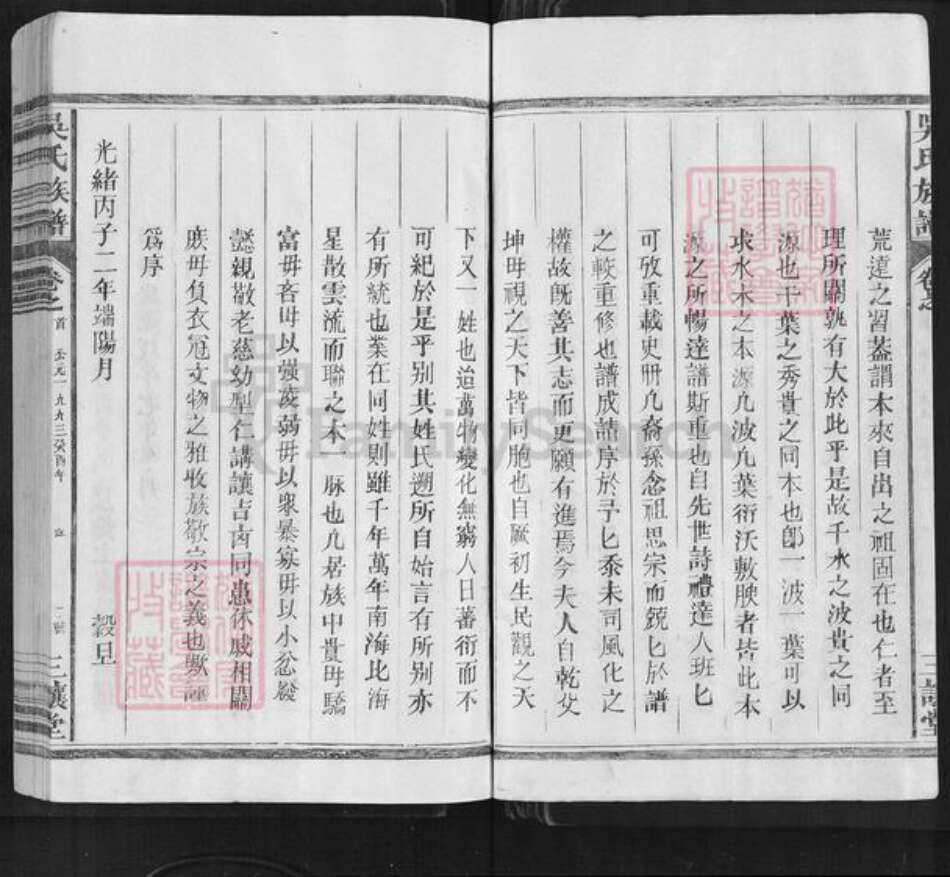 吳氏族譜
卷之
三讓堂
荒遠之習蓋謂木來自出之祖固在也仁者至
理所關孰有大於此乎是故千水之波貴之同
源也千葉之秀貴之同本也卽一波一葉可以
求水木之本源凡波凡葉衍沃敷腴者皆此本
源之所暢達譜斯重也自先世詩禮達人班匕
可攷重載史册凡裔孫念祖思宗而兢匕於譜
之較重修也譜成請序於予匕忝未司風化之
權故旣善其志而更願有進焉今夫人自乾父
坤毋視之天下皆同胞也自厥初生民觀之天
下又一姓也迨萬物變化無窮人日蕃衍而不
可紀於是乎别其姓氏遡所自始言有所别亦
有所統也業在同姓則雖千年萬年南海比海
星散雲流而聯之本一脉也凡居族中貴毋驕
富毋吝毋以强凌弱毋以衆暴寡毋以小忿縱
懿親敬老慈幼型仁講讓吉凶同患休戚相關
族毋負衣冠文物之雅收族敬宗之義也歟
爲序
光緒丙子二年端陽月
穀旦
吳氏族譜
卷之
首
公元一九九三癸酉年
三讓堂